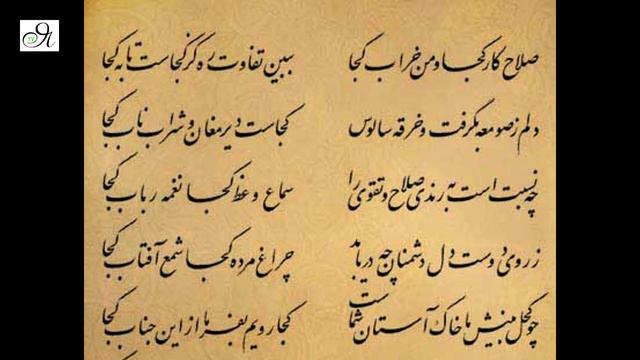 صلاح کار کجا و من خراب کجا
ببین تفاوت ره کز کجاست تا به کجا
دلم ز صومعه بگرفت و خرقه سالوس
کجاست دیر مغان و شراب ناب کجا
چه نسبت است به رندی صلاح و تقوی را
سماع وعظ کجا نغمه رباب کجا
ز روی دوست دل دشمنان چه دریابد
چراغ مرده کجا شمع آفتاب کجا
چو کحل بینش ما خاک آستان شماست
کجا رویم بفرما از این جناب کجا